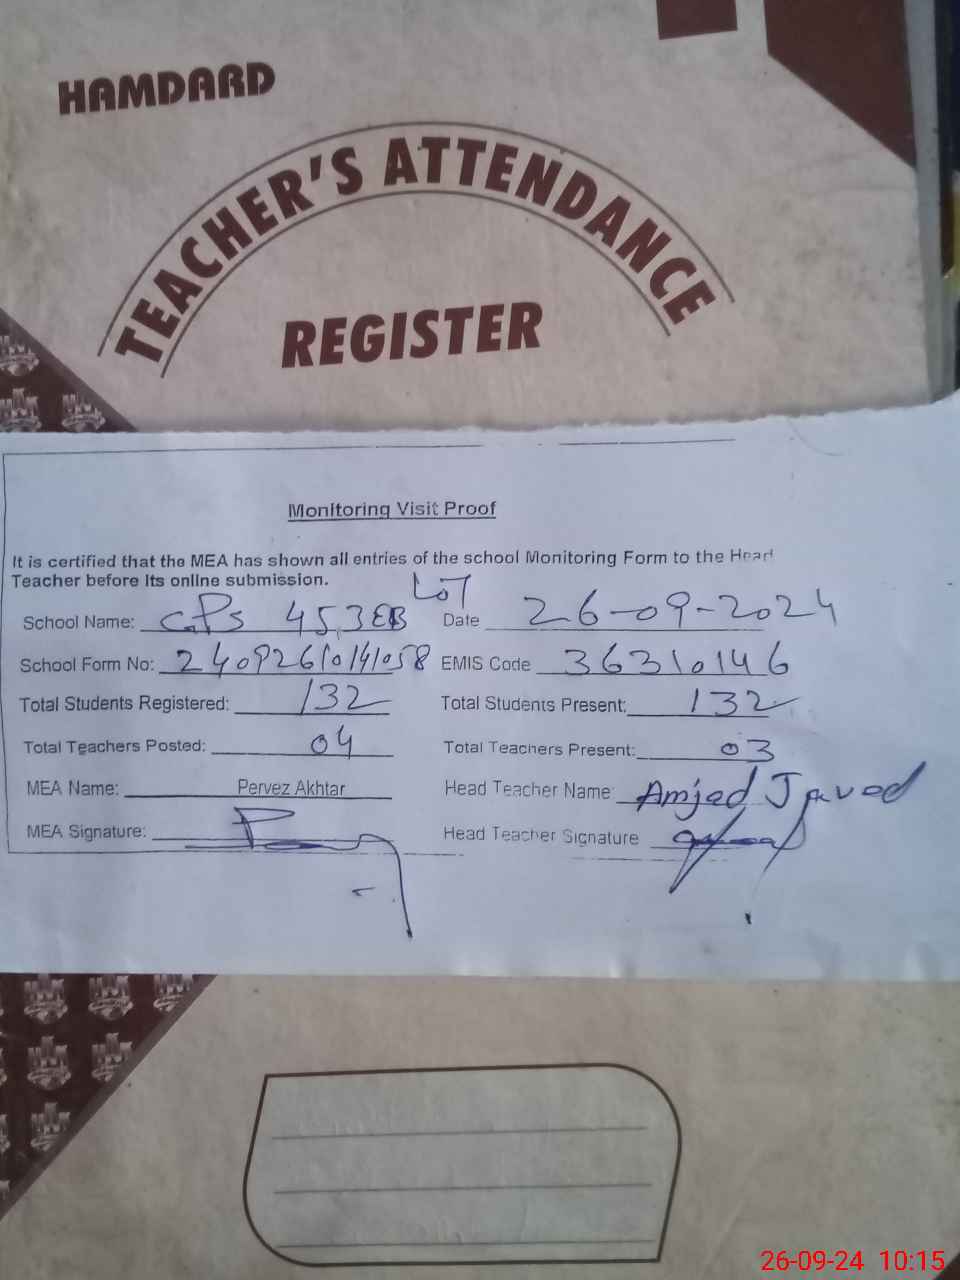 HAMDARD
TEACHER'S ATTENDANCE
REGISTER
Monitoring Visit Proof
It is certified that the MEA has shown all entries of the school Monitoring Form to the Head
Teacher before its online submission.
School Name: GPS 453EB LOT Date 26-09-2024
School Form No: 24092610141058 EMIS Code 36310146
Total Students Registered: 132 Total Students Present: 132
Total Teachers Posted: 04 Total Teachers Present: 03
MEA Name: Pervez Akhtar Head Teacher Name: Amjad Javed
MEA Signature: Head Teacher Signature
26-09-24 10:15